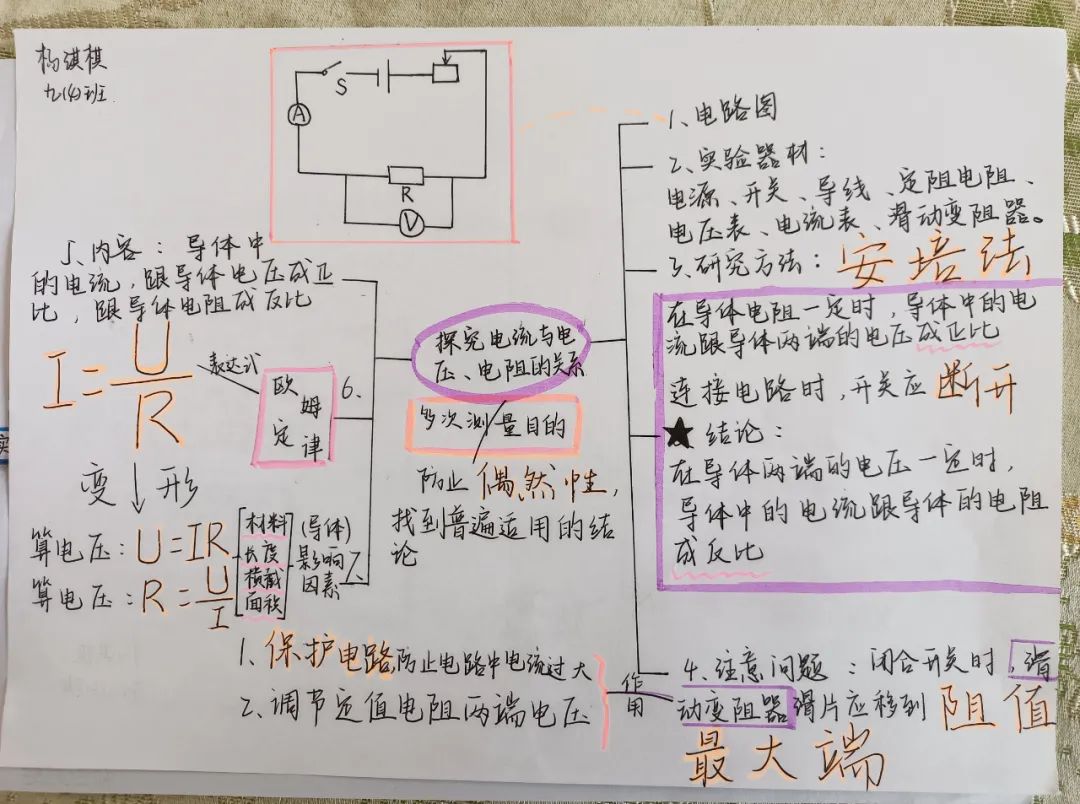 杨淇棋
九(4)班
S
A
R
V
1、电路图
2、实验器材：
电源、开关、导线、定阻电阻、
电压表、电流表、滑动变阻器。
3、研究方法：安培法
在导体电阻一定时，导体中的电
流跟导体两端的电压成正比
连接电路时，开关应断开
★结论：
在导体两端的电压一定时，
导体中的电流跟导体的电阻
成反比
4、注意问题：闭合开关时，滑
动变阻器滑片应移到阻值
最大端
作用
1、保护电路，防止电路中电流过大
2、调节定值电阻两端电压
探究电流与电
压、电阻的关系
多次测量目的
防止偶然性，
找到普遍适用的结
论
5、内容：导体中
的电流，跟导体电压成正
比，跟导体电阻成反比
6、
欧姆
定律
表达式
I=U/R
变形
算电压：U=IR
算电压：R=U/I
7、
(导体)
影响
因素
材料
长度
横截
面积